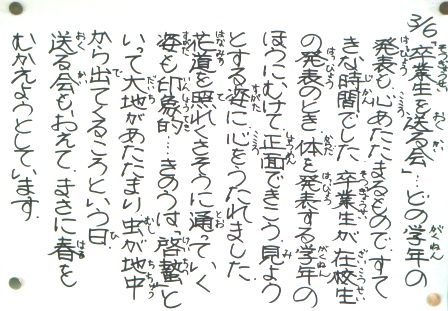 3/6「卒業生を送る会」…どの学年の
発表も心あたたまるもので、すて
きな時間でした。卒業生が在校生
の発表のとき、体を発表する学年の
ほうにむけて正面できこう、見よう
とする姿に心をうたれました。
花道を照れくさそうに通っていく
姿も印象的…きのうは「啓蟄」と
いって大地があたたまり虫が地中
から出てくるころという日。
送る会もおえて、まさに春を
むかえようとしています。